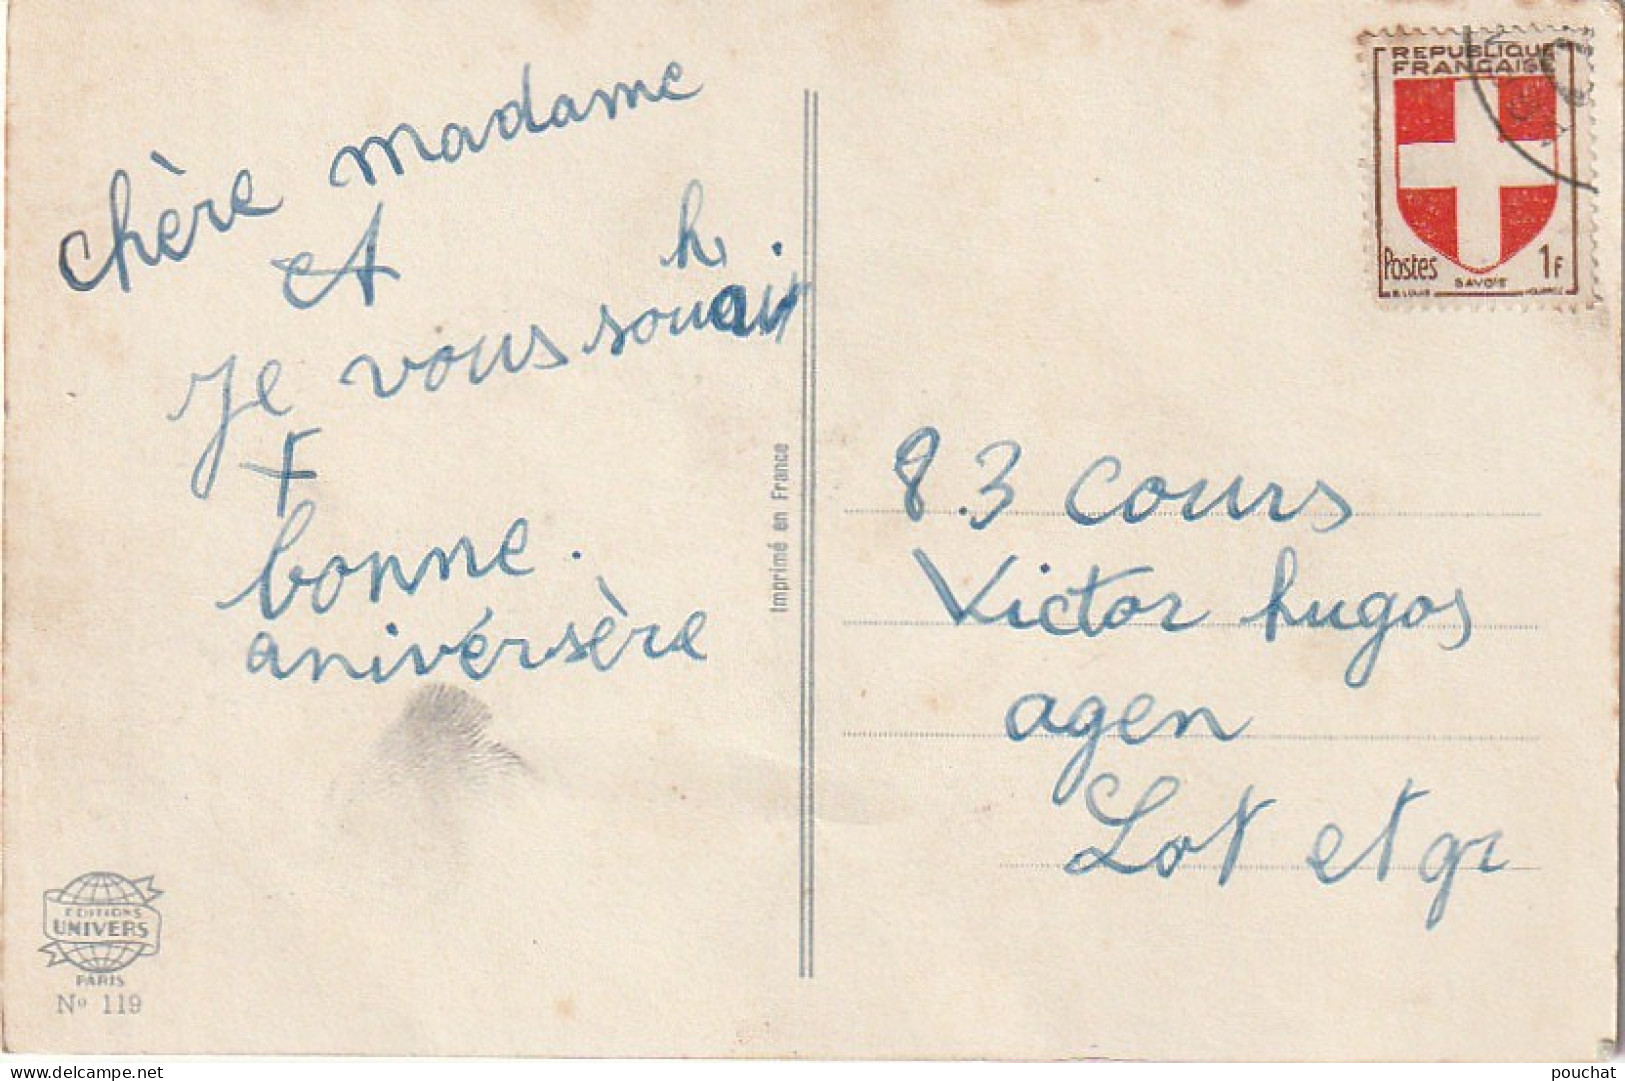 chère madame
et
h
Je vous souait
+
bonne.
anivérsère
Imprimé en France
EDITIONS
UNIVERS
PARIS
Nº 119
REPUBLIQUE
FRANÇAISE
Postes 1F
SAVOIE
83 cours
Victor hugos
agen
Lot et gr
pouchat
delcampe.net